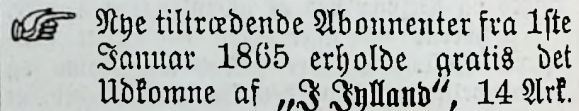 ☞ Nye tiltrædende Abonnenter fra 1ste
Januar 1865 erholde gratis det
Udkomne af „I Jylland“, 14 Ark.